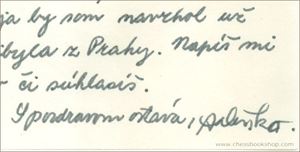 ja by som navrhol už
z Prahy. Napíš mi
či súhlasíš.
S pozdravom ostáva,
www.chessbookshop.com